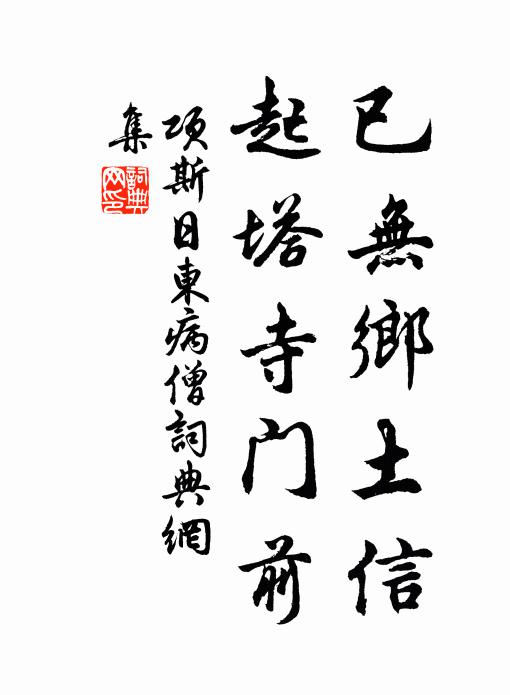 已無鄉土信
起塔寺門前
項斯日東病僧詞典網
集
詞典网印